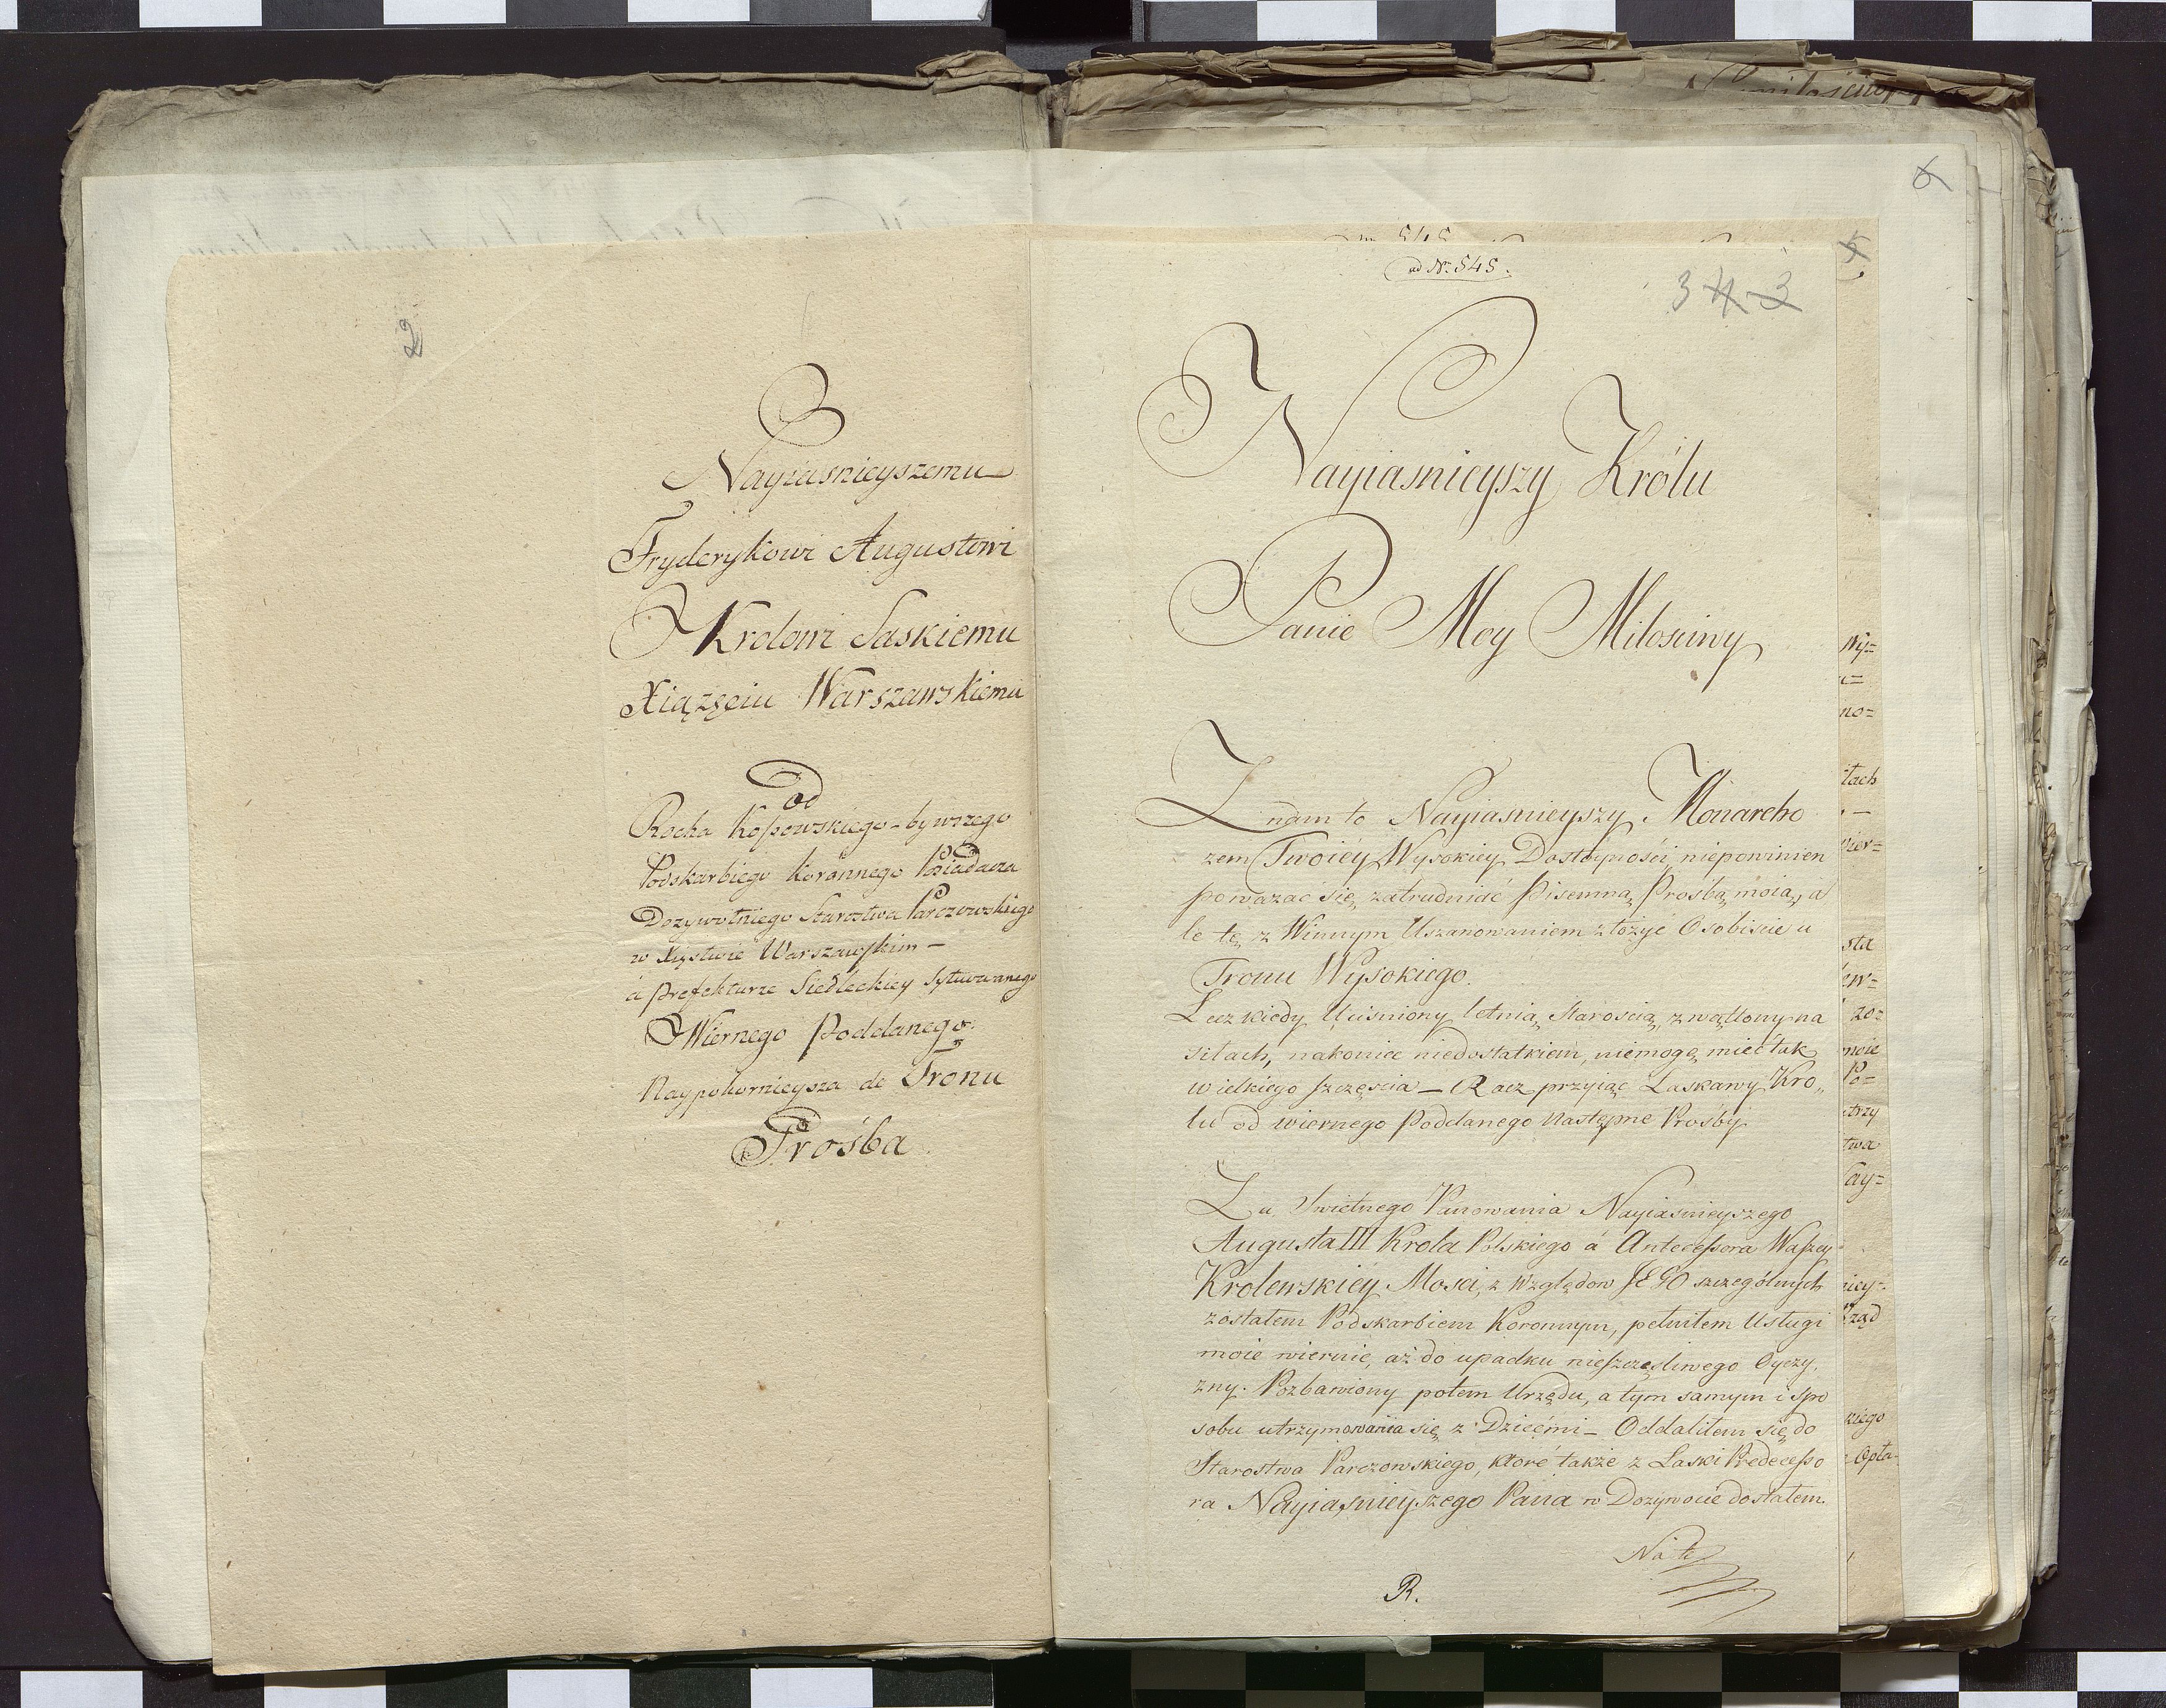 2
Nayiasnieyszemu
Fryderykowi Augustowi
Krolowi Saskiemu
Xiążęciu Warszawskiemu
od
Rocha Kossowskiego - bywszego
Podskarbiego Koronnego Posiadacza
Dozywotniego Starostwa Parczowskiego
w Xięstwie Warszawskim -
a prefekturze Siedleckiey Sytuowanego
Wiernego Poddanego
Naypokornieysza do Tronu
Prośba
6
5
ad Nr. 545.
3 4 3
Nayiasnieyszy Królu
Panie Moy Milosciwy
Znam to Nayiasnieyszy Monarcho
zem Twoiey Wysokiey Dostoyności niepowinien
powazac się zatrudniać Pisemną Prośbą moią, a
le tę z Winnym Uszanowaniem złożyć Osobiscie u
Tronu Wysokiego.
Lecz kiedy Uciśniony letnią Starością, zwątlony na
siłach, nakoniec niedostatkiem, niemogę mieć tak
wielkiego szczęscia - Racz przyiąc Laskawy Kro„
lu od wiernego Poddanego Następne Prośby
Za Swietnego Panowania Nayiasnieyszego
Augusta III Krola Polskiego á Antecessora Waszey
Krolewskiey Mosci, z Względow JEGO szczególnych
zostałem Podskarbiem Koronnym, pełniłem Usługi
moie wiernie, aż do upadku nieszczęsliwego Oyczy.
zny. Pozbawiony potem Urzędu, a tym samym i spo
sobu utrzymowania się z Dziećmi - Oddaliłem się do
Starostwa Parczowskiego, ktoré także z Laski Predecesso
ra Nayiaśnieyszego Pana w Dozywocie dostałem.
Na te
R.